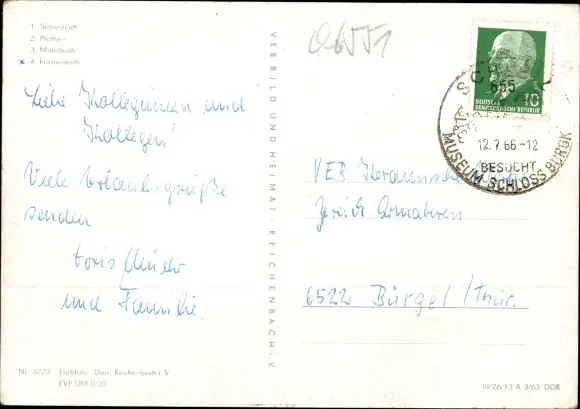 1. Starenteich
2. Plothen
3. Mittelteich
4. Fürstenteich
Liebe Kolleginnen und
Kollegen!
Viele Urlaubsgrüße
senden
und Familie
VEB BILD UND HEIMAT REICHENBACH i. V
Nr. 3223 Farbfoto: Reichenbach i. V
EVP DM 0,20
0655
10
DEUTSCHE
DEMOKRATISCHE REPUBLIK
655
12.7.66.-12
BESUCHT
MUSEUM SCHLOSS BURGK
VEB Keramische
Bereich Armaturen
6522 Bürgel/Thür.
III/26/13 A 3/63 DDR